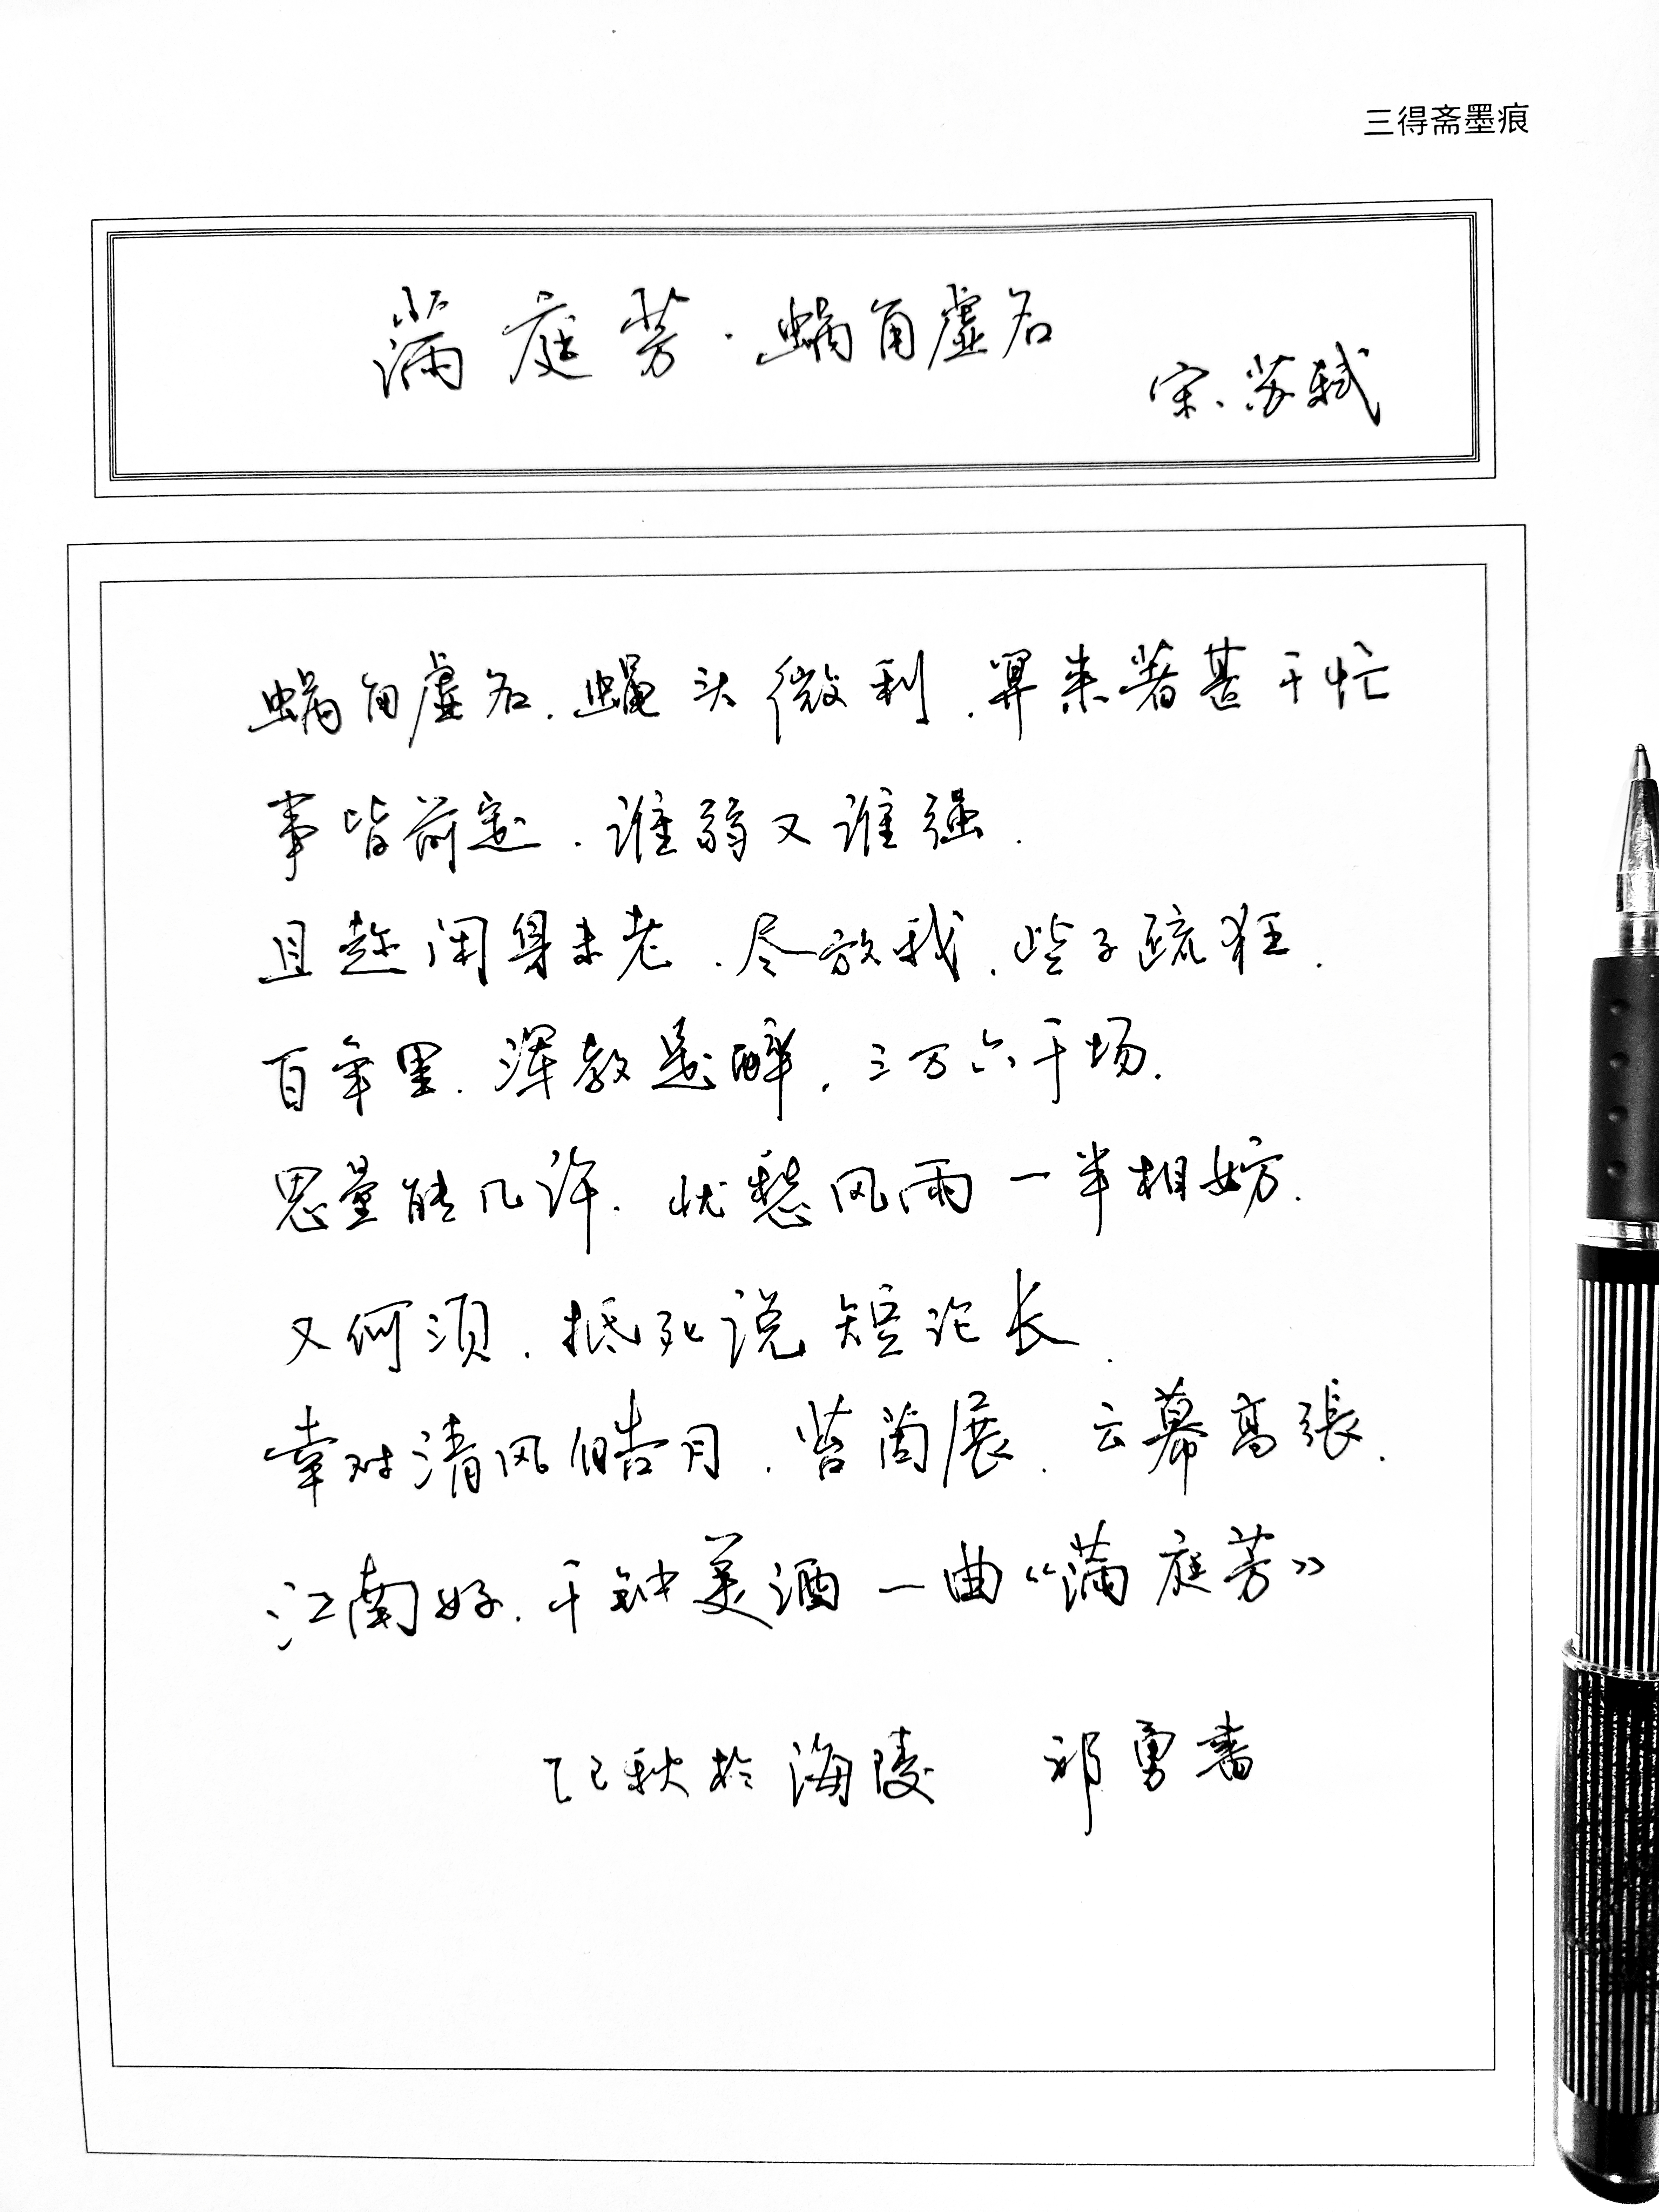 三得斋墨痕
满庭芳·蜗角虚名
宋、苏轼
蜗角虚名.蝇头微利.算来著甚干忙
事皆前定.谁弱又谁强.
且趁闲身未老.尽放我.些子疏狂.
百年里.浑教是醉.三万六千场.
思量能几许.忧愁风雨一半相妨.
又何须.抵死说短论长.
幸对清风皓月.苔茵展.云幕高張.
江南好.千钟美酒一曲《满庭芳》
乙巳秋於海陵 祁勇書